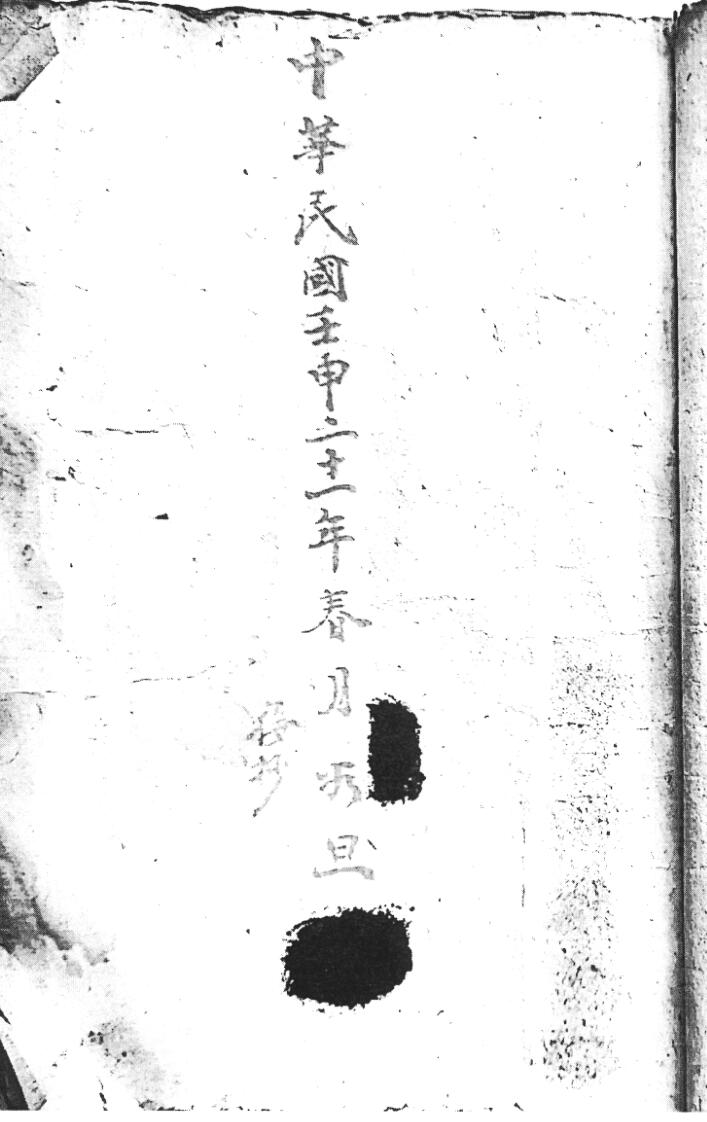 中華民國壬申二十一年春月旦
抄